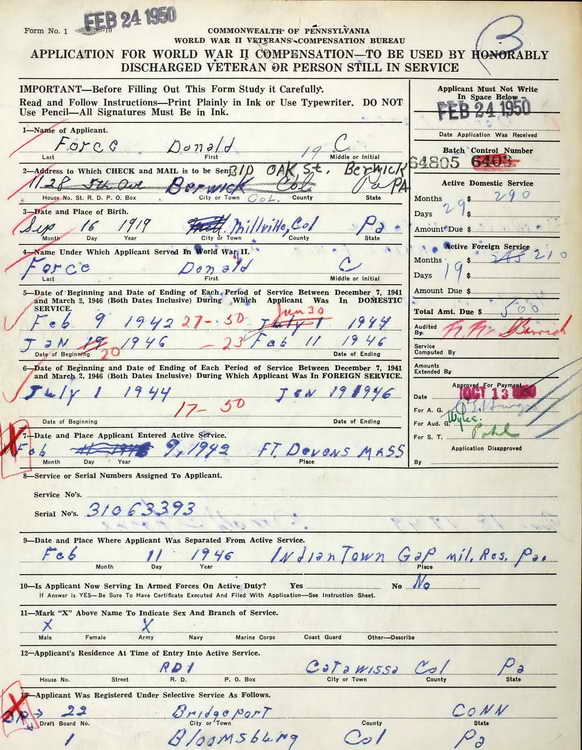 FEB 24 1950
Form No. 1
COMMONWEALTH OF PENNSYLVANIA
WORLD WAR II VETERANS' COMPENSATION BUREAU
B
APPLICATION FOR WORLD WAR II COMPENSATION—TO BE USED BY HONORABLY
DISCHARGED VETERAN OR PERSON STILL IN SERVICE
IMPORTANT—Before Filling Out This Form Study it Carefully.
Read and Follow Instructions—Print Plainly in Ink or Use Typewriter. DO NOT
Use Pencil—All Signatures Must Be in Ink.
Applicant Must Not Write
In Space Below—
FEB 24 1950
Date Application Was Received
Batch Control Number
64805 6403
1—Name of Applicant.
Force Donald C
Last First Middle or Initial
2—Address to Which CHECK and MAIL is to be Sent
310 OAK St. Berwick
1128 5th Ave Berwick Col Pa PA
House No. St. R. D. P. O. Box City or Town County State
COL.
3—Date and Place of Birth.
Sep 16 1919 Millville, Col Pa
Month Day Year City or Town County State
4—Name Under Which Applicant Served In World War II.
Force Donald C
Last First Middle or Initial
5—Date of Beginning and Date of Ending of Each Period of Service Between December 7, 1941
and March 2, 1946 (Both Dates Inclusive) During Which Applicant Was In DOMESTIC
SERVICE.
Jun 30
Feb 9 1942 27-50 July 1 1944
JAN 19 1946 -23 Feb 11 1946
20
Date of Beginning Date of Ending
6—Date of Beginning and Date of Ending of Each Period of Service Between December 7, 1941
and March 2, 1946 (Both Dates Inclusive) During Which Applicant Was In FOREIGN SERVICE.
July 1 1944 Jan 19 1946
17-50
Date of Beginning Date of Ending
X
7—Date and Place Applicant Entered Active Service.
Feb 9, 1942 FT. Devens MASS
Month Day Year Place
8—Service or Serial Numbers Assigned To Applicant.
Service No's.
Serial No's. 31063393
9—Date and Place Where Applicant Was Separated From Active Service.
Feb 11 1946 IndianTown Gap mil. Res. Pa.
Month Day Year Place
10—Is Applicant Now Serving In Armed Forces On Active Duty? Yes No No
If Answer is YES—Be Sure To Have Certificate Executed And Filed With Application—See Instruction Sheet.
11—Mark "X" Above Name To Indicate Sex and Branch of Service.
X X
Male Female Army Navy Marine Corps Coast Guard Other—Describe
12—Applicant's Residence At Time of Entry Into Active Service.
RD1 Catawissa Col Pa
House No. Street R. D. P. O. Box City or Town County State
X
13—Applicant Was Registered Under Selective Service As Follows.
22 Bridgeport CONN
Draft Board No. City or Town County State
1 Bloomsburg Col Pa
Active Domestic Service
Months
Days 29 $ 290
Amount Due $
Active Foreign Service
Months $ 210
Days 19 $
Amount Due $
Total Amt. Due $ 500
Audited
By.
Service
Computed By
Amounts
Extended By
Approved For Payment
Date OCT 13
For A. G.
For Aud. G.
For S. T.
Application Disapproved
By